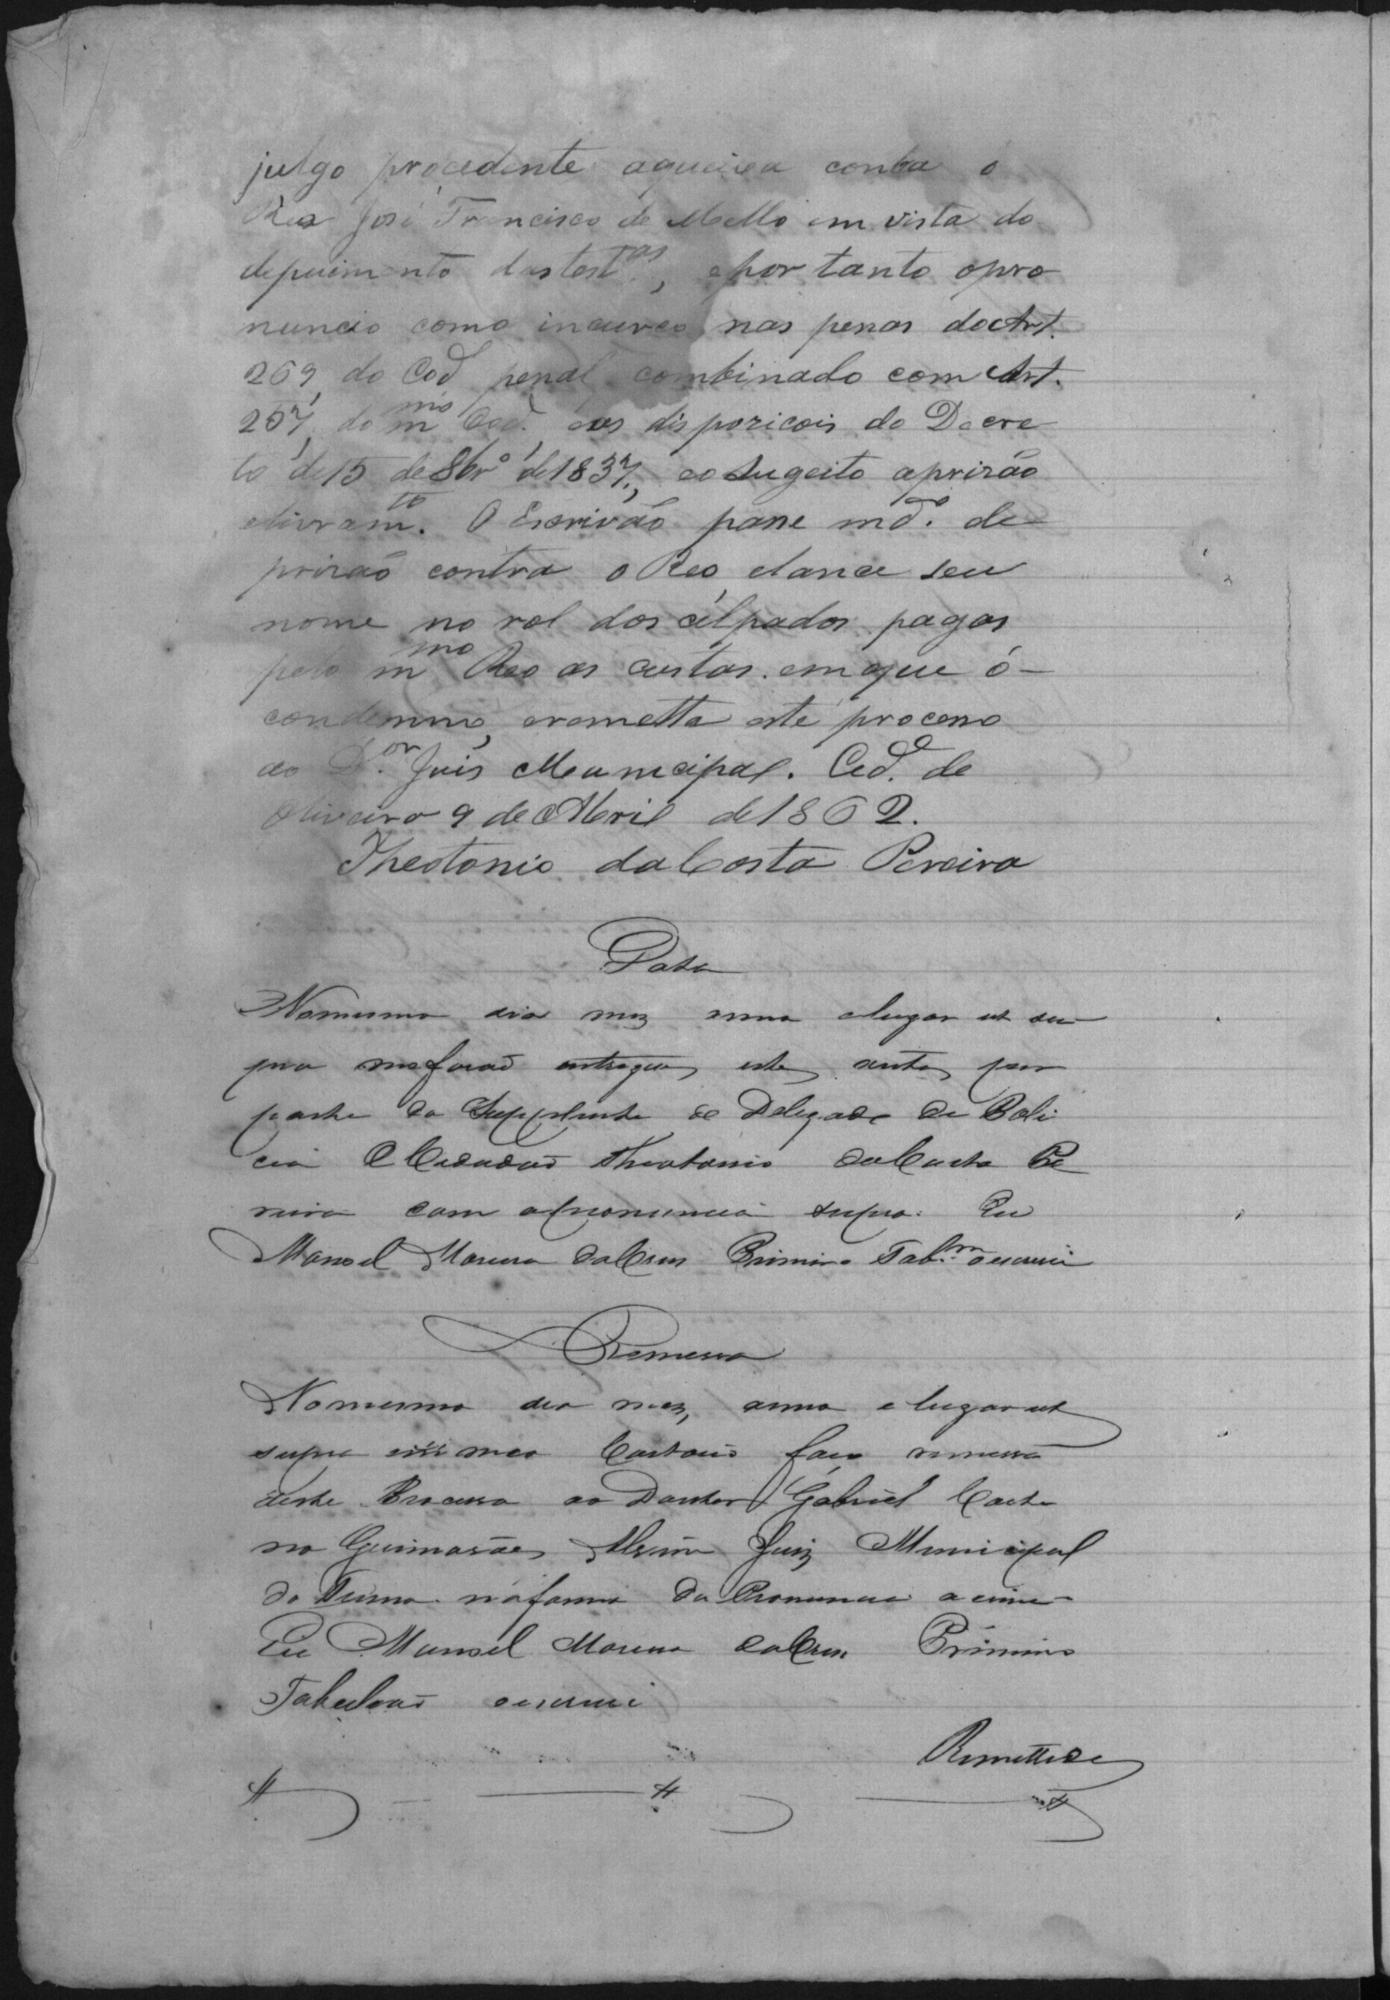 julgo procedente aqueixa contra o
Reo José Francisco de Mello em vista do
depuimento dastest.as, eportanto opro
nuncio como incurco nas penas doArt.
269, do Cod penal combinado com Art.
257, do mmo Cod. eas disporicois do Decre
to de 15 de 8br.o de 1837, eo sugeito aprizão
elivram.to. O Escrivão passe md.o de
prizão contra o Reo elance seu
nome no rol dos culpados pagas
pelo mmo Reo as custas emque ó
condemno, eremetta este processo
ao D.or Juis Municipal. Cid.e de
Oliveira 9 de Abril de 1862.
Theotonio daCosta Pereira
Data
Nomesmo dia mez anno elugar ut su
pra meforaõ entregues estes autos por
parte do Supplente do Delegado de Poli
cia O Cidadaõ Theotonio daCosta Pe
reira com apronuncia supra. Eu
Manoel Moreira daCruz Primeiro Tab.am oescrevi
Remessa
Nomesmo dia mez, anno e lugar ut
supra em meo Cartorio faço remessa
deste Processo ao Doutor Gabriel Caeta
no Guimarães Juiz Municipal
do Termo naforma da Pronuncia acima
Eu Manoel Moreira daCruz Primeiro
Tabeliaõ oescrevi
Remettido